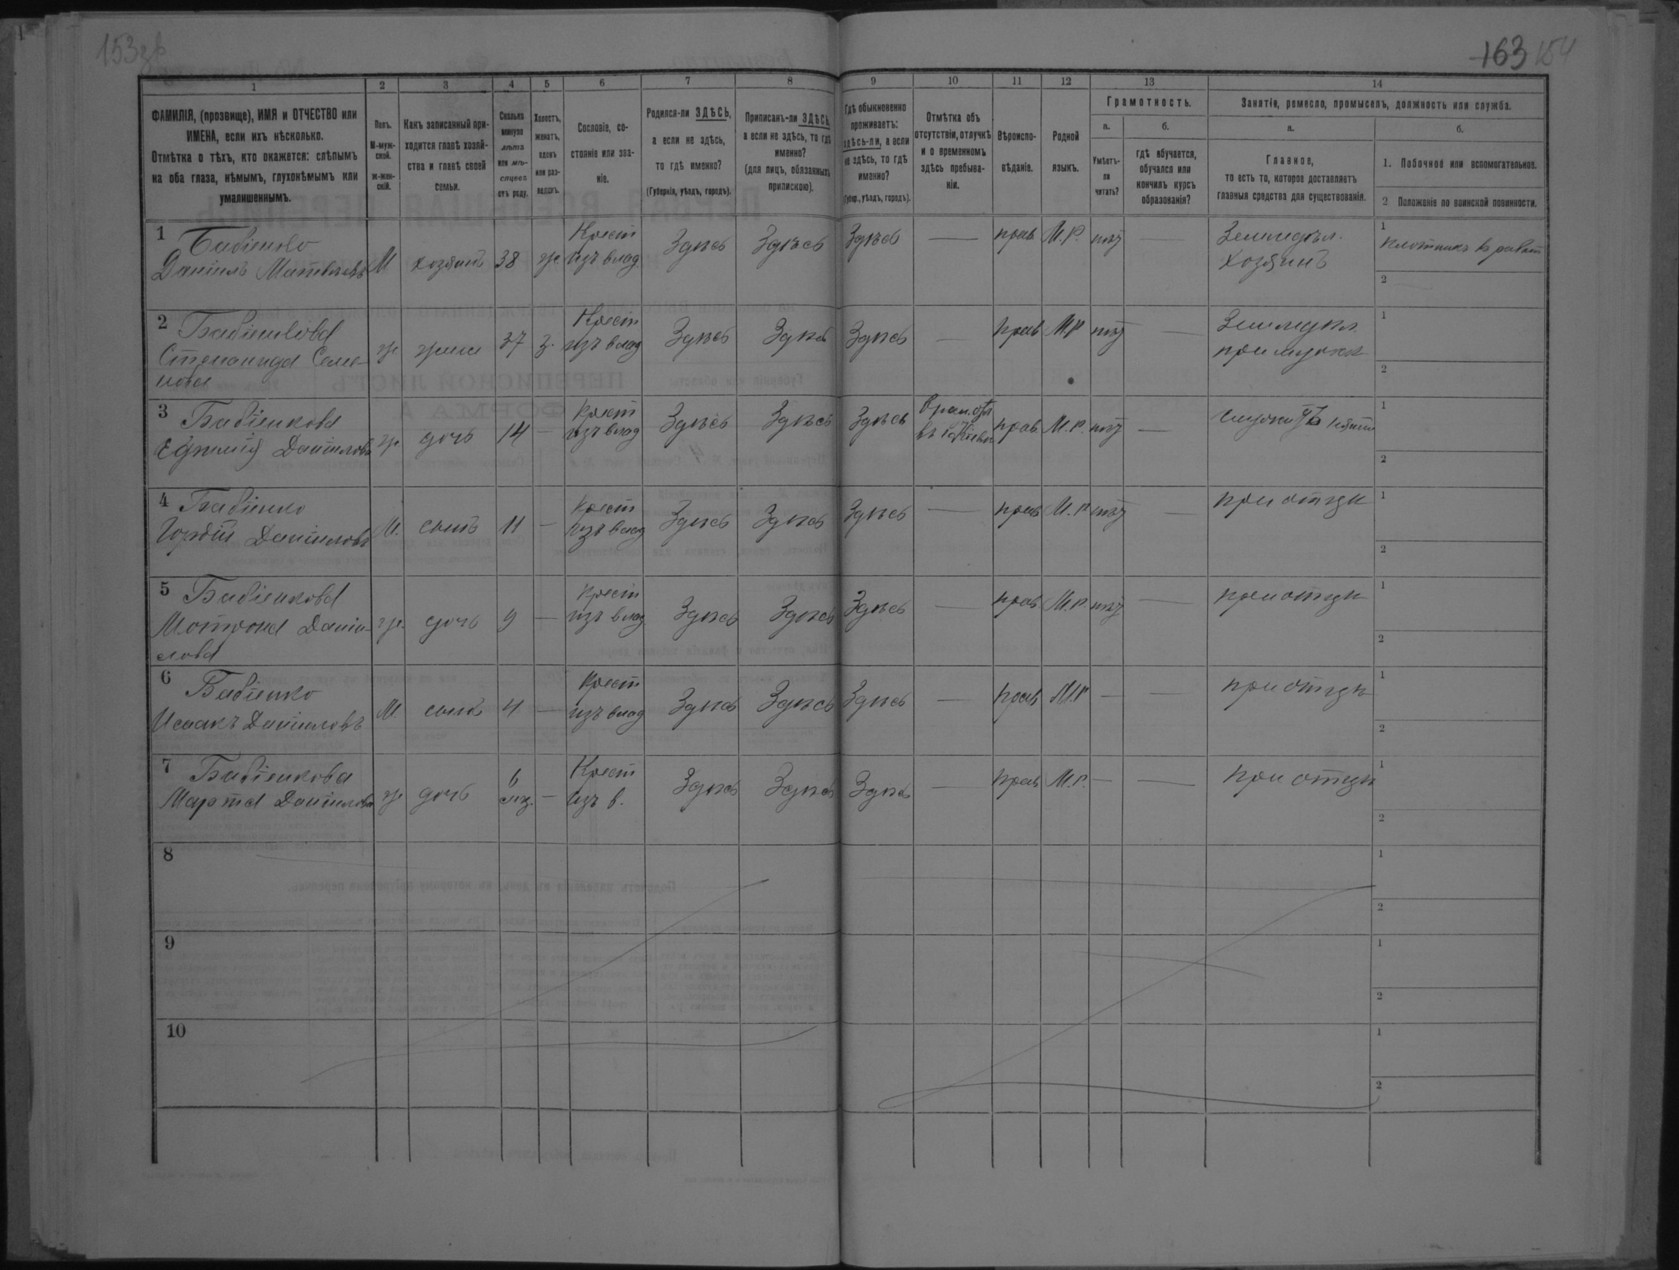 153об
163 154
1 2 3 4 5 6 7 8 9 10 11 12 13 14
ФАМИЛІЯ, (прозвище), ИМЯ и ОТЧЕСТВО или
ИМЕНА, если ихъ нѣсколько.
Отмѣтка о тѣхъ, кто окажется: слѣпымъ
на оба глаза, нѣмымъ, глухонѣмымъ или
умалишеннымъ.
Полъ.
М-муж-
ской.
Ж-жен-
скій.
Какъ записанный при-
ходится главѣ хозяй-
ства и главѣ своей
семьи.
Сколько
минуло
лѣтъ
или мѣ-
сяцевъ
отъ роду.
Холостъ,
женатъ,
вдовъ
или раз-
веденъ.
Сословіе, со-
стояніе или зва-
ніе.
Родился-ли ЗДѢСЬ,
а если не здѣсь,
то гдѣ именно?
(Губернія, уѣздъ, городъ).
Приписанъ-ли ЗДѢСЬ,
а если не здѣсь, то гдѣ
именно?
(для лицъ, обязанныхъ
припискою).
Гдѣ обыкновенно
проживаетъ:
здѣсь-ли, а если
не здѣсь, то гдѣ
именно?
(Губер., уѣздъ, городъ).
Отмѣтка объ
отсутствіи, отлучкѣ
и о временномъ
здѣсь пребыва-
ніи.
Вѣроиспо-
вѣданіе.
Родной
языкъ.
Грамотность.
а.
Умѣетъ-
ли
читать?
б.
гдѣ обучается,
обучался или
кончилъ курсъ
образованія?
Занятіе, ремесло, промыселъ, должность или служба.
а.
Главное,
то есть то, которое доставляетъ
главныя средства для существованія.
б.
1. Побочное или вспомогательное.
2 Положеніе по воинской повинности.
1 Бабіенко
Даніилъ Матвѣевъ М хозяинъ 38 же Крест
изъ влад Здѣсь Здѣсь Здѣсь — прав М.Р. нѣт — Земледѣл.
Хозяинъ 1
2
2 Бабіенкова
Степанида Семе-
нова ж жена 37 з. Крест
изъ влад Здѣсь Здѣсь Здѣсь — прав М.Р нѣт — Земледѣл
при мужѣ 1
2
3 Бабіенкова
Данилова ж дочь 14 — Крест
изъ влад Здѣсь Здѣсь Здѣсь прав М.Р. нѣт — 1
2
4 Бабіенко
Гордій Даніиловъ М. сынъ 11 — Крест
изъ влад Здѣсь Здѣсь Здѣсь — прав М.Р нѣт — при отцѣ 1
2
5 Бабіенкова
Мотрона Даніи-
лова ж. дочь 9 — Крест
изъ влад Здѣсь Здѣсь Здѣсь — прав М.Р. нѣт — при отцѣ 1
2
6 Бабіенко
Исаакъ Даніиловъ М. сынъ 4 — Крест
изъ влад Здѣсь Здѣсь Здѣсь — прав М.Р — — при отцѣ 1
2
7 Бабіенкова
Марта Даніилова ж дочь 6
мц. — Крест
изъ в. Здѣсь Здѣсь Здѣсь — прав М.Р. — — при отцѣ 1
2
8 1
2
9 1
2
10 1
2